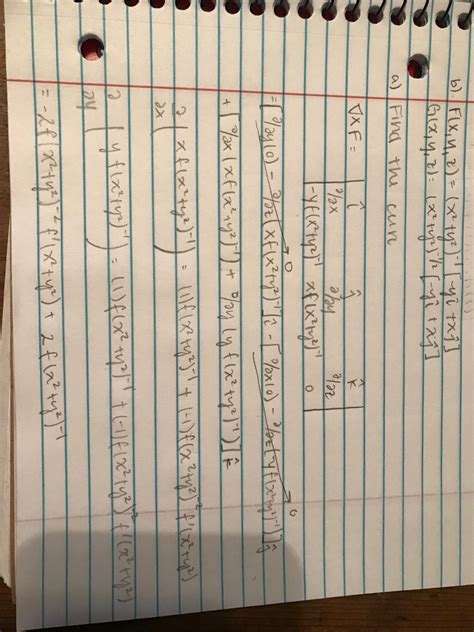 b). F(x,y,z) = (x²+y²)⁻¹ [-yî + xĵ]
G(x,y,z) = (x²+y²)^-1/2 [-yî + xĵ]
a) Find the curl
∇×F = | î ĵ k̂ |
| ∂/∂x ∂/∂y ∂/∂z |
| -yf(x²+y²)⁻¹ xf(x²+y²)⁻¹ 0 |
= [∂/∂y(0) - ∂/∂z(xf(x²+y²)⁻¹)]î - [∂/∂x(0) - ∂/∂z(-yf(x²+y²)⁻¹)]ĵ
+ [∂/∂x(xf(x²+y²)⁻¹) + ∂/∂y(yf(x²+y²)⁻¹)]k̂
∂/∂x (xf(x²+y²)⁻¹) = (1)f(x²+y²)⁻¹ + (-1)f(x²+y²)⁻² f'(x²+y²)
∂/∂y (yf(x²+y²)⁻¹) = (1)f(x²+y²)⁻¹ + (-1)f(x²+y²)⁻² f'(x²+y²)
= -2f(x²+y²)⁻² f'(x²+y²) + 2f(x²+y²)⁻¹